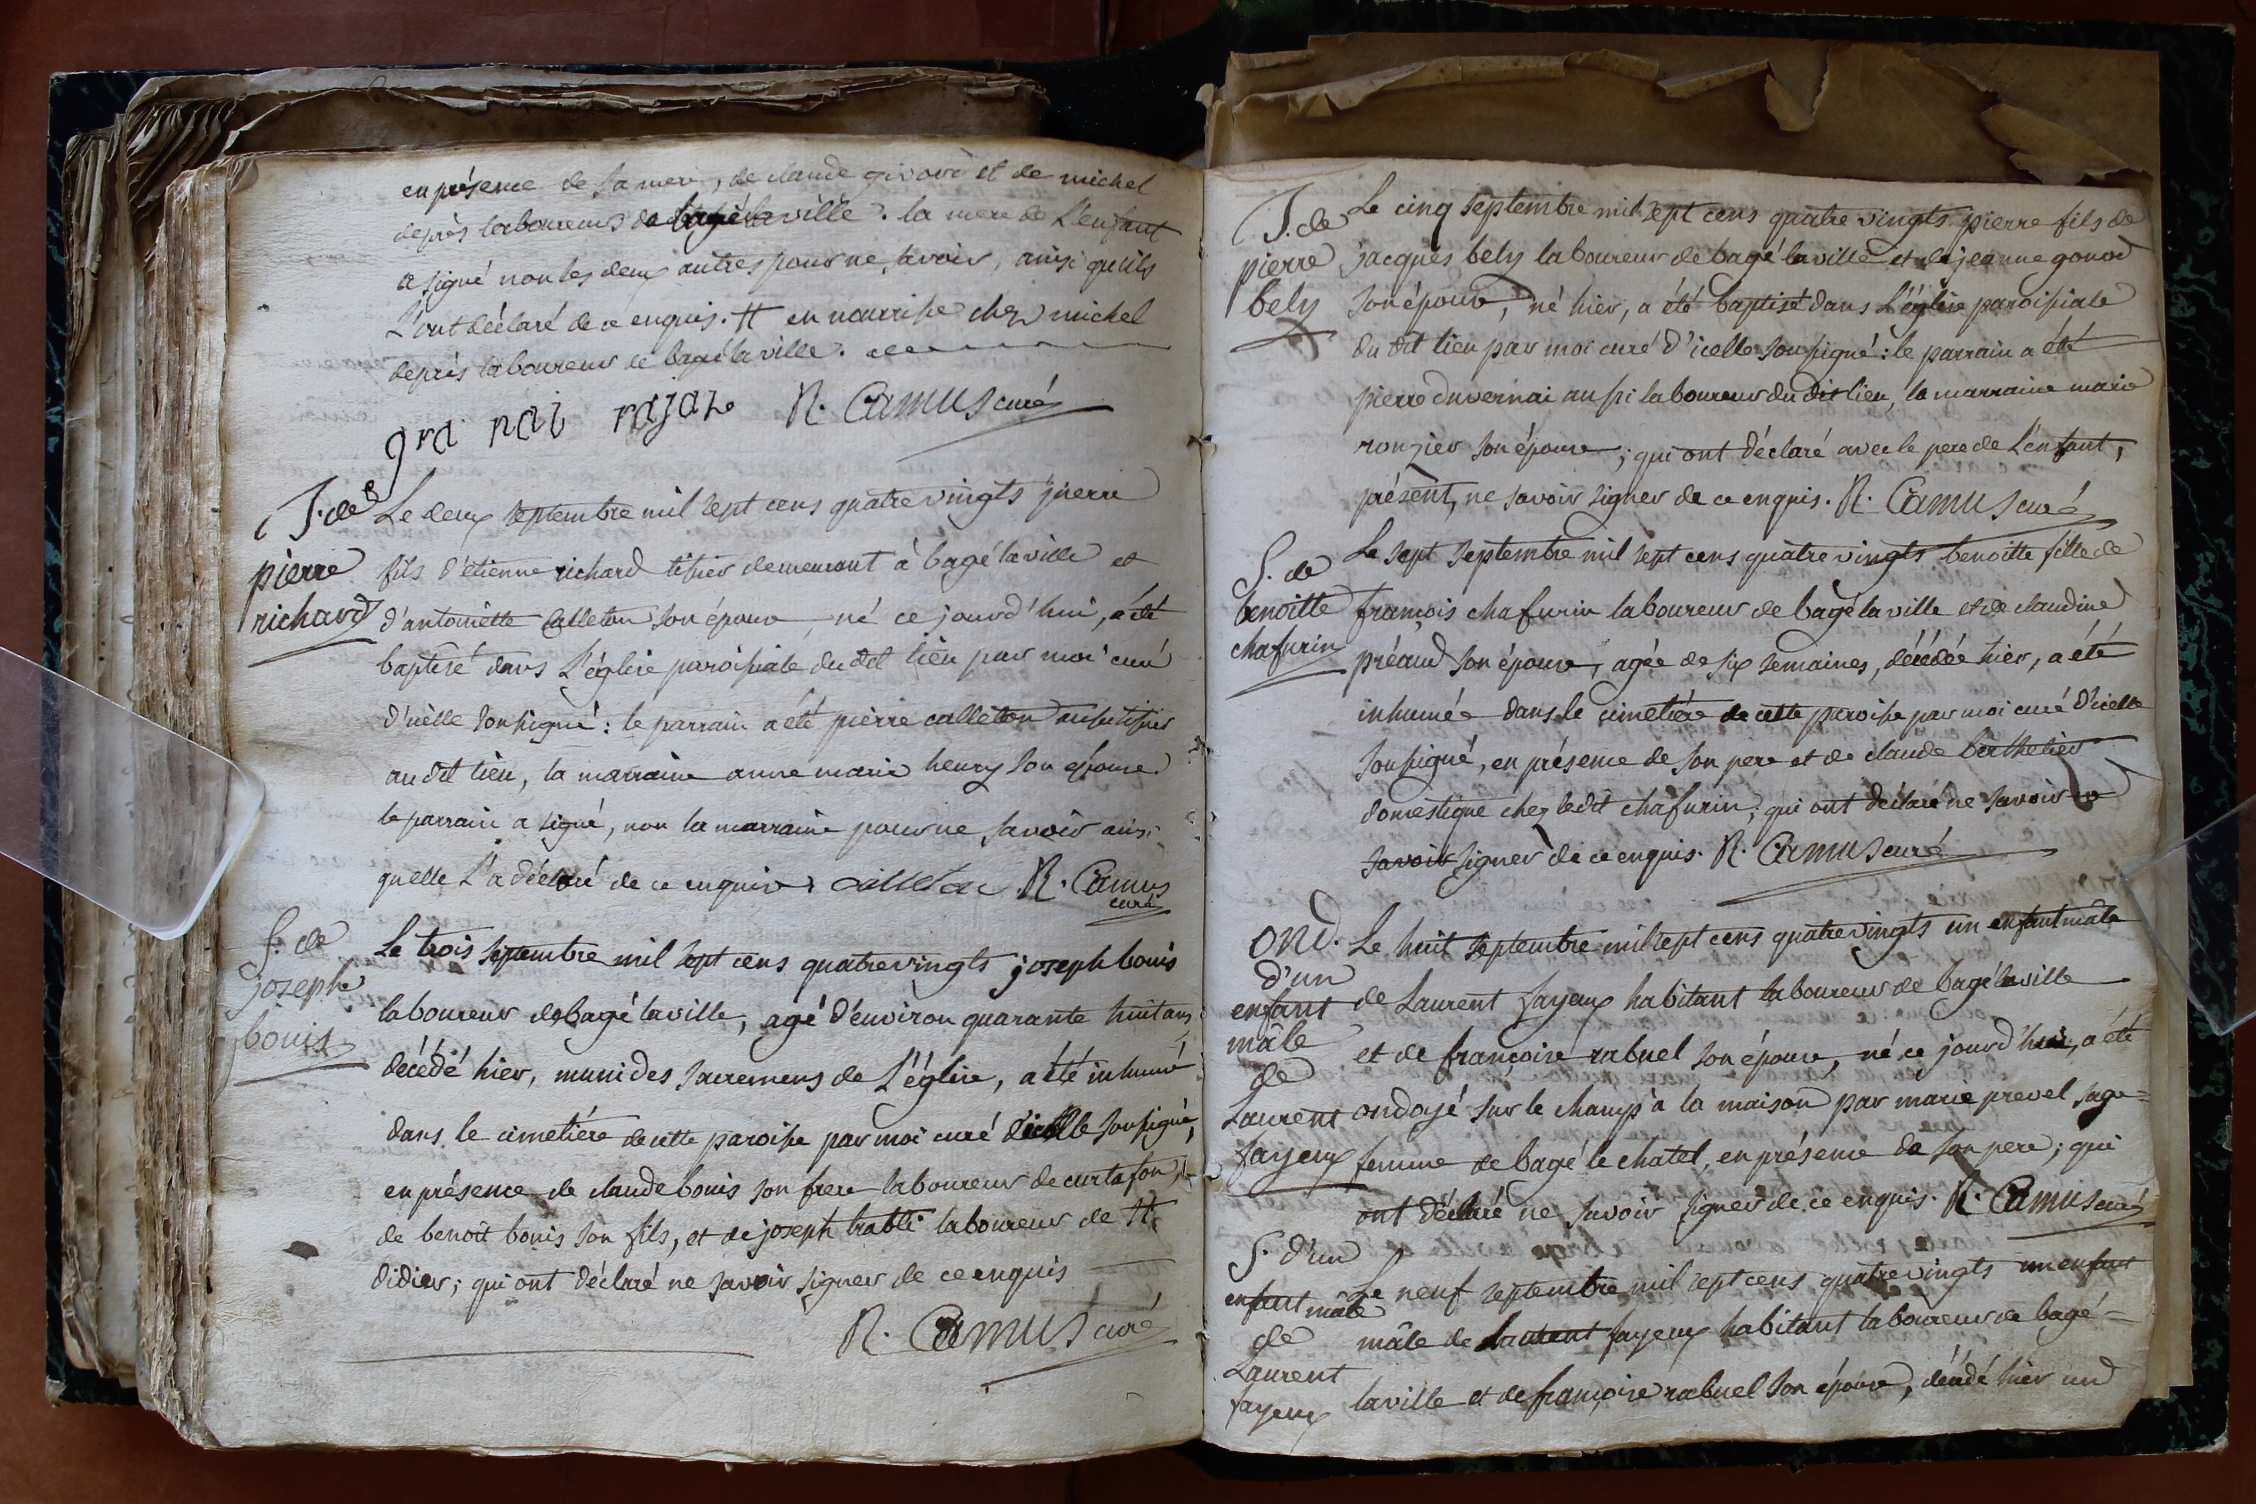 en présence de sa mere, de claude givord et de michel
deprés laboureurs de bagé la ville. la mere de L'enfant
a signé non les deux autres pour ne savoir, ainsi qu'ils
L'ont déclaré de ce enquis. Il en nourrisse chez michel
deprés laboureur de bagé la ville.
R. Camus curé
T. de
pierre
richard
Le deux septembre mil sept cens quatre vingts pierre
fils d'étienne richard tissier demeurant à bagé la ville et
d'antoinette Calleton son épouse, né ce jourd'hui, a été
baptisé dans L'église paroissiale du dit lieu par moi curé
d'icelle soussigné : le parrain a été pierre calleton aussi tissier
au dit lieu, la marraine anne marie henry son épouse.
le parrain a signé, non la marraine pour ne savoir ainsi
quelle L'a déclaré de ce enquise calleton R. Camus
curé
S. de
joseph
bouis
Le trois septembre mil sept cens quatre vingts joseph bouis
laboureur de bagé la ville, agé d'environ quarante huit ans
décédé hier, muni des sacremens de L'église, a été inhumé
dans le cimetiére de cette paroisse par moi curé d'icelle soussigné,
en présence de claude bouis son frere laboureur de curtafon,
de benoît bouis son fils, et de joseph trabli laboureur de St
didier; qui ont déclaré ne savoir signer de ce enquis
R. Camus curé
T. de
pierre
bely
Le cinq septembre mil sept cens quatre vingts pierre fils de
jacques bely laboureur de bagé la ville et de jeanne gonod
son épouse, né hier, a été baptisé dans L'église paroissiale
du dit lieu par moi curé d'icelle soussigné : le parrain a été
pierre duvernai aussi laboureur du dit lieu, la marraine marie
ronzier son épouse; qui ont déclaré avec le pere de L'enfant,
présent, ne savoir signer de ce enquis. R. Camus curé
S. de
benoitte
chafurin
Le sept septembre mil sept cens quatre vingts benoitte fille de
françois chafurin laboureur de bagé la ville et de claudine
préaud son épouse, agée de six semaines, décédée hier, a été
inhumée dans le cimetiére de cette paroisse par moi curé d'icelle
soussigné, en présence de son pere et de claude berthelier
domestique chez ledit chafurin; qui ont déclaré ne savoir
savoir signer de ce enquis. R. Camus curé
Ond.
d'un
enfant
mâle
de
Laurent
fayeux
Le huit septembre mil sept cens quatre vingts un enfant mâle
de Laurent fayeux habitant laboureur de bagé la ville
et de françoise rabuel son épouse, né ce jourd'hui, a été
ondoyé sur le champ à la maison par marie prevel sage=
femme de bagé le chatel, en présence de son pere; qui
ont déclaré ne savoir signer de ce enquis. R. Camus curé
S. d'un
enfant mâle
de
Laurent
fayeux
Le neuf septembre mil sept cens quatre vingts un enfant
mâle de Laurent fayeux habitant laboureur de bagé-
la ville et de françoise rabuel son épouse, décédé hier